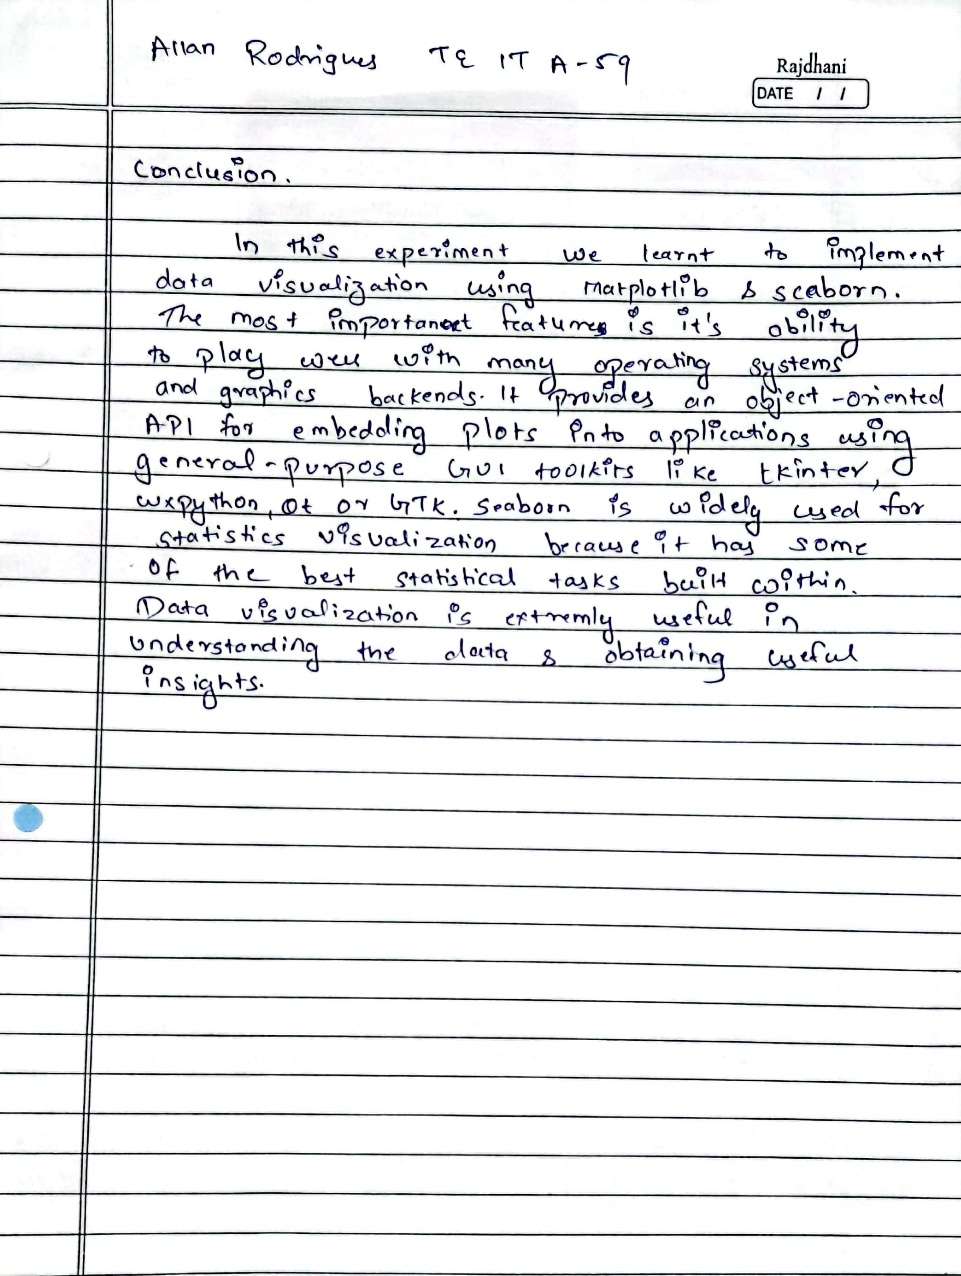 Allan Rodrigues TE IT A-59
Rajdhani
DATE / /
Conclusion.
In this experiment we learnt to implement
data visualization using Matplotlib & seaborn.
The most important features is it's ability
to play well with many operating systems
and graphics backends. It provides an object-oriented
API for embedding plots into applications using
general-purpose GUI toolkits like tkinter,
wxpython, Qt or GTK. Seaborn is widely used for
statistics visualization because it has some
of the best statistical tasks built within.
Data visualization is extremly useful in
understanding the data & obtaining useful
insights.